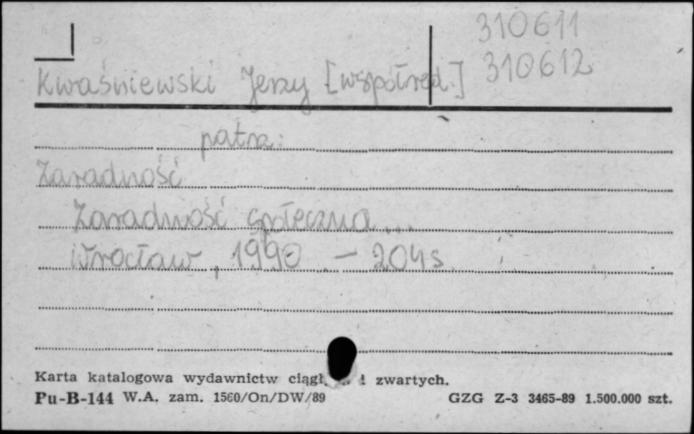 310611
310612
Kwaśniewski Jerzy [współred.]
patrz:
Zaradność
Zaradność społeczna...
Wrocław, 1990. - 204 s.
Karta katalogowa wydawnictw zwartych.
Pu-B-144 W.A. zam. 1560/On/DW/89 GZG Z-3 3465-89 1.500.000 szt.